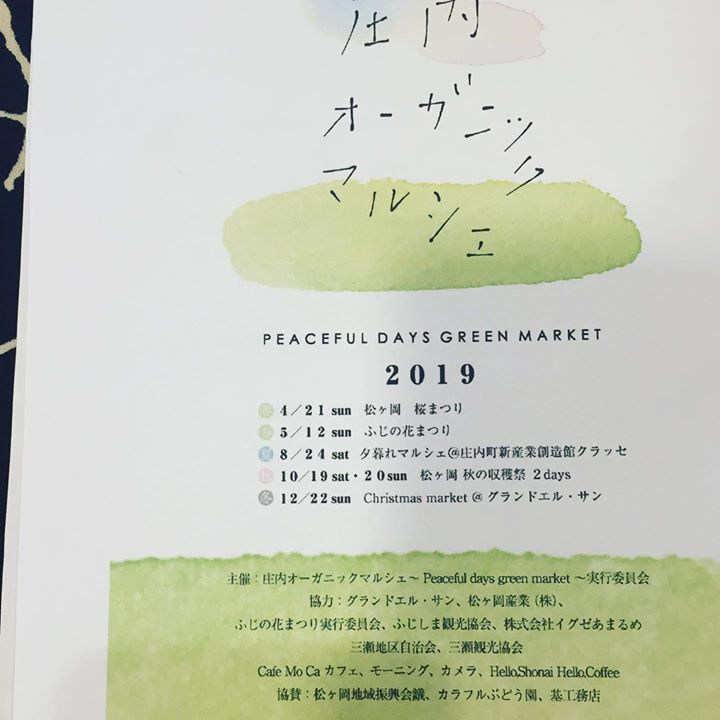 庄内
オーガニック
マルシェ
PEACEFUL DAYS GREEN MARKET
2019
春 4／21 sun 松ヶ岡 桜まつり
春 5／12 sun ふじの花まつり
夏 8／24 sat 夕暮れマルシェ@庄内町新産業創造館クラッセ
秋 10／19 sat・20 sun 松ヶ岡 秋の収穫祭 2days
冬 12／22 sun Christmas market @ グランドエル・サン
主催：庄内オーガニックマルシェ～ Peaceful days green market ～実行委員会
協力：グランドエル・サン、松ヶ岡産業（株）、
ふじの花まつり実行委員会、ふじしま観光協会、株式会社イグゼあまるめ
三瀬地区自治会、三瀬観光協会
Cafe Mo Ca カフェ、モーニング、カメラ、Hello,Shonai Hello,Coffee
協賛：松ヶ岡地域振興会議、カラフルぶどう園、基工務店